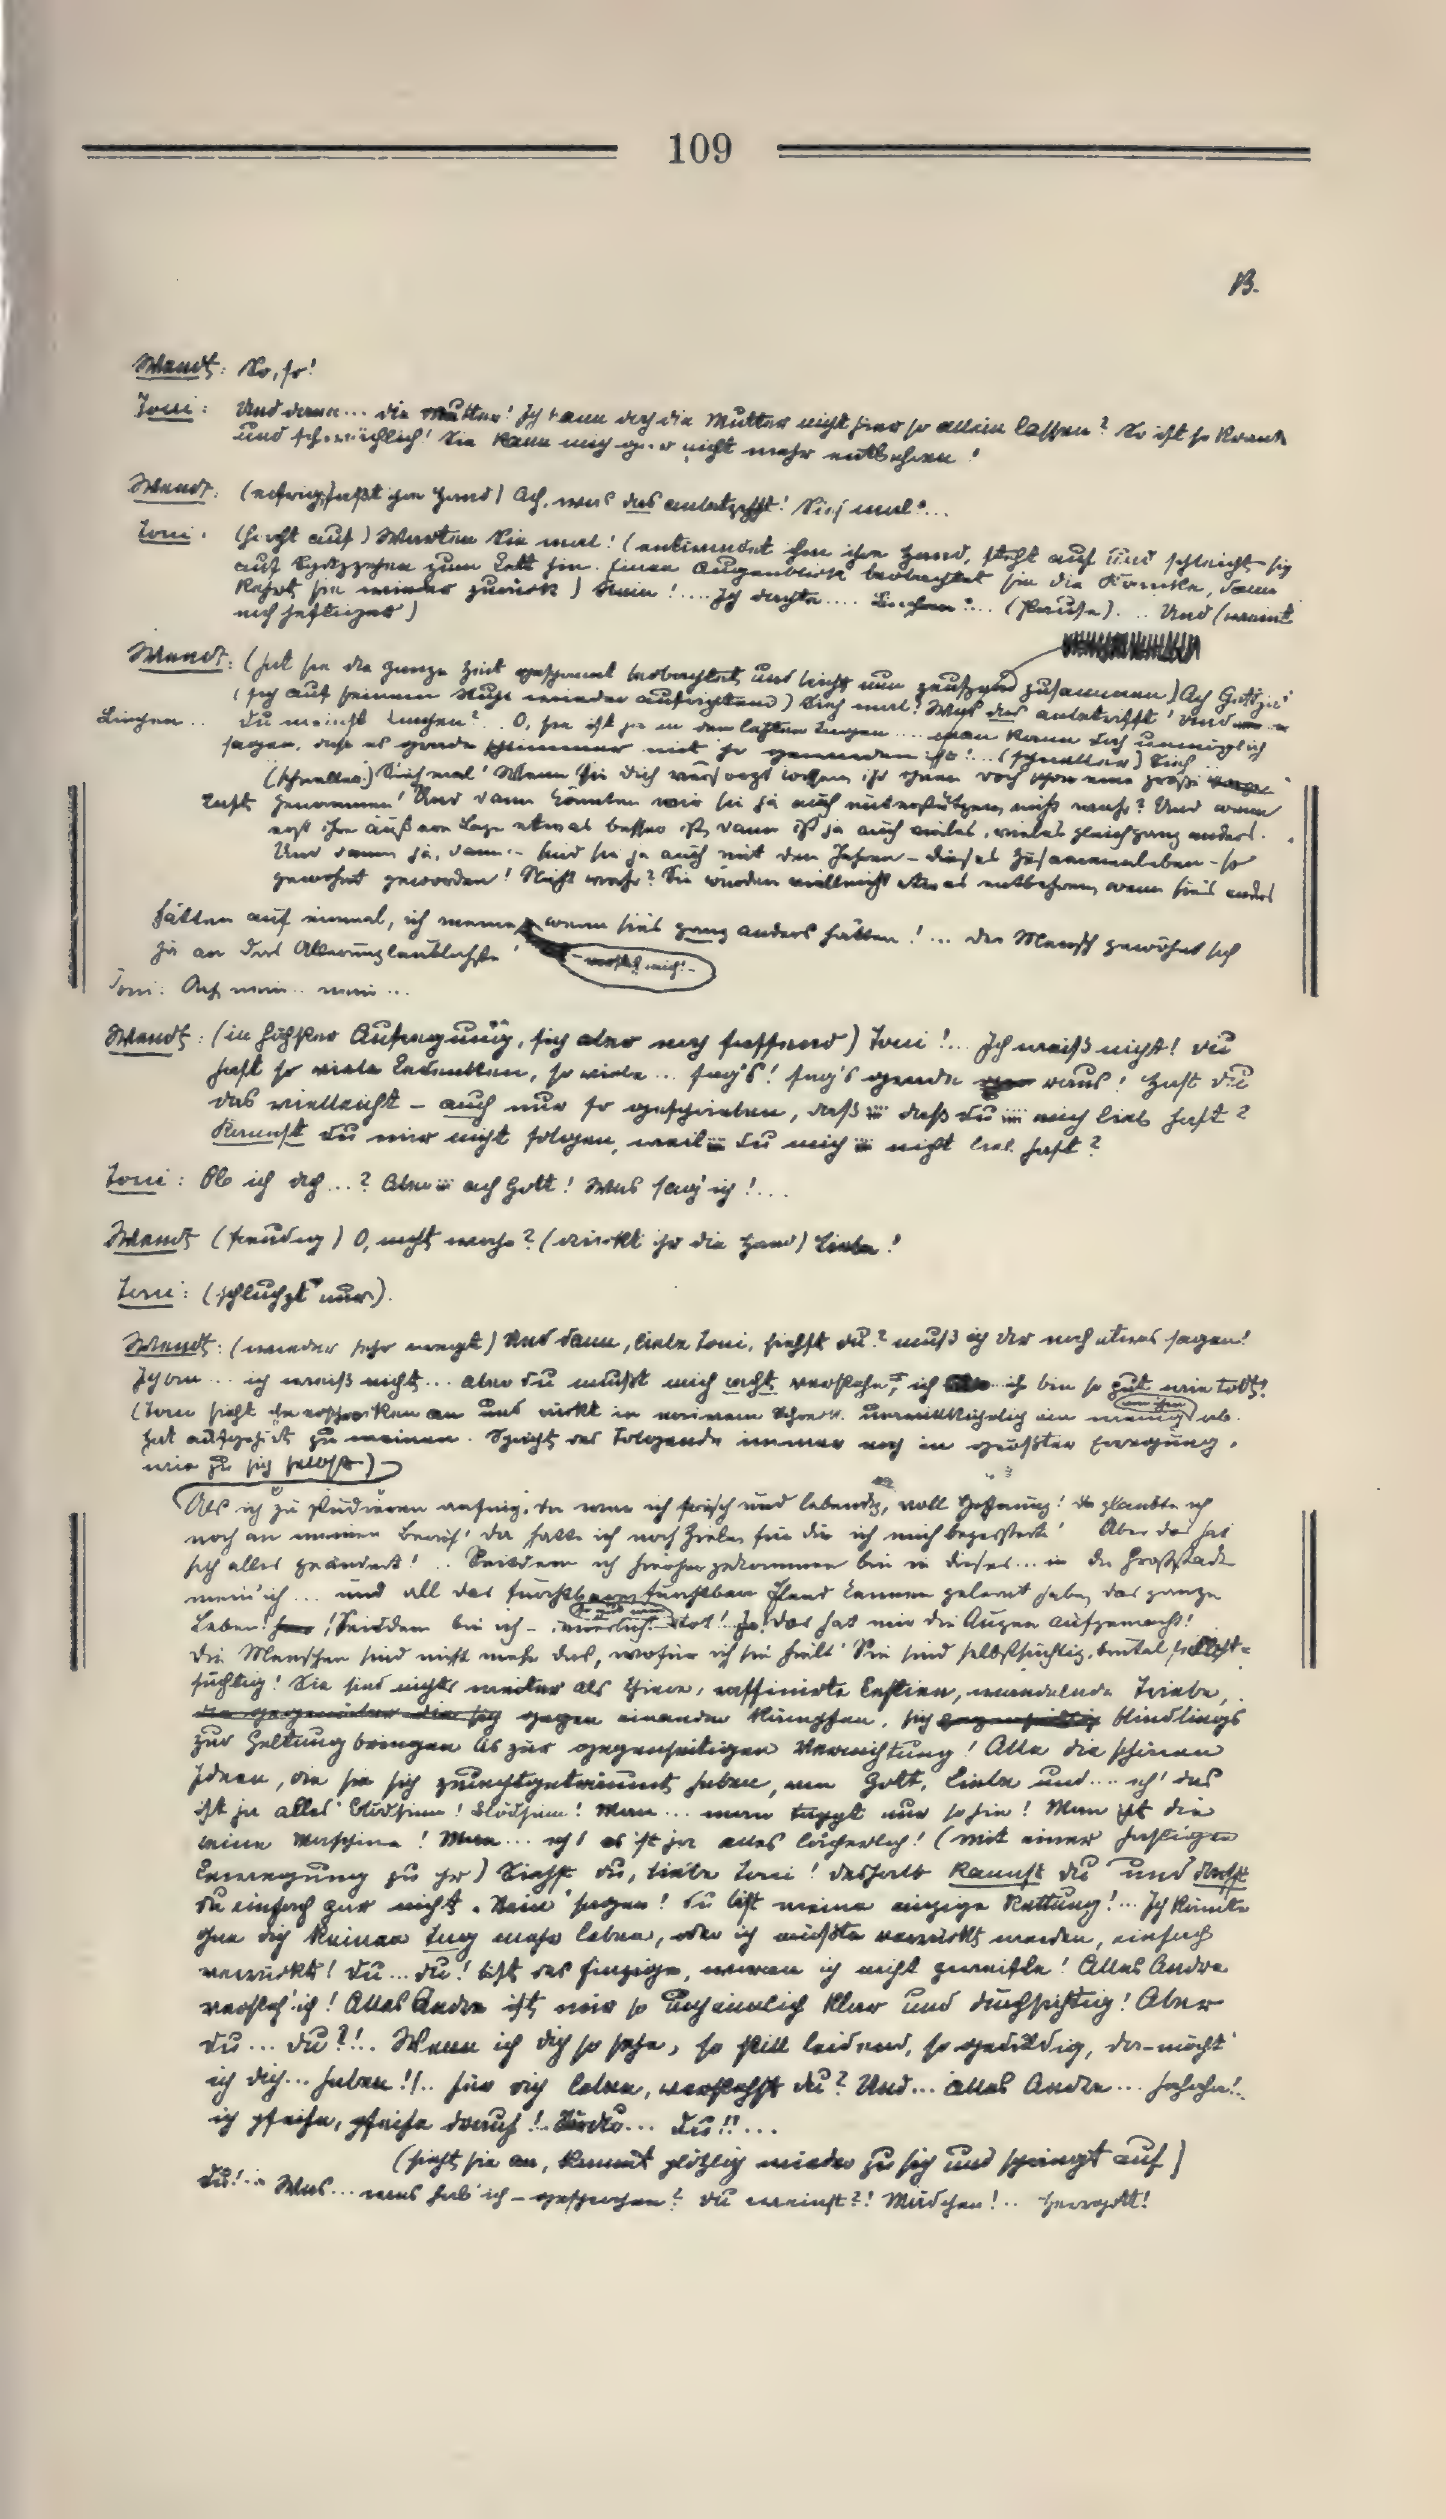 109
B.
Wendt: So, so!
Toni: Und dann... die Mutter! Ich kann doch die Mutter nicht hier so allein lassen? Sie ist so krank
und schwächlich! Sie kann mich gar nicht mehr entbehren!
Wendt: (eifrig, faßt ihre Hand) Ach, was das anbetrifft! Sieh mal!...
Toni: (horcht auf) Warten Sie mal! (entwindet ihm ihre Hand, steht auf und schleicht sich
auf Fußspitzen zum Bett hin. Einen Augenblick beobachtet sie die Kranke, dann
kehrt sie wieder zurück) Nein!.... Ich dachte.... Linchen!... (Pause)... Und (weint
noch heftiger)
Wendt: (hat sie die ganze Zeit gespannt beobachtet und bricht nun seufzend zusammen) Ach Gott ja!
(sich auf seinem Stuhl wieder aufrichtend) Sieh mal! Was das anbetrifft! Und
Linchen.. Du meinst Linchen?.. O, sie ist ja in den letzten Tagen.... man kann doch unmöglich
sagen, daß es grade schlimmer mit ihr geworden ist!... (schneller) Sieh..
(schneller) Sieh mal! Wenn sie dich versorgt wissen, ist ihnen doch schon eine große Sorge
Last genommen! Und dann könnten wir sie ja auch unterstützen, nicht wahr? Und wenn
erst ihre äußere Lage etwas besser ist, dann ist ja auch vieles, vieles gleich ganz anders.
Und dann ja, dann.. sind sie ja auch mit den Jahren - dieses Zusammenleben - so
gewohnt geworden! Nicht wahr? Sie würden vielleicht etwas entbehren, wenn sie's anders
hätten auf einmal, ich meine, wenn sie's ganz anders hätten!... Der Mensch gewöhnt sich
ja an das Allerunglaublichste! - versteh mich! -
Toni: Ach, nein.. nein...
Wendt: (in höchster Aufregung, sich aber noch fassend) Toni!... Ich weiß nicht! Du
hast so viele Bedenken, so viele... sag's! sag's grade raus! Hast du
das vielleicht - auch nur so geschrieben, daß... daß du... mich lieb hast?
Kannst du mir nicht folgen, weil... du mich... nicht lieb hast?
Toni: Ob ich dich...? Aber... ach Gott! Was sag' ich!...
Wendt (freudig) O, nicht wahr? (drückt ihr die Hand) Liebe!
Toni: (schluchzt nur).
Wendt: (wieder sehr erregt) Und dann, liebe Toni, siehst du? muß ich dir noch etwas sagen!
Ich bin... ich weiß nicht... aber du mußt mich recht verstehen, ich ich bin so gut wie todt!
(Toni sieht ihn erschrocken an und rückt in norirem Schreck unwillkührlich ein wenig von ihm ab.
Hat aufgehört zu weinen. Spricht das Folgende immer noch in größter Erregung,
wie zu sich selbst)
Als ich zu studieren anfing, da war ich frisch und lebendig, voll Hoffnung! Da glaubte ich
noch an meinen Beruf! Da hatte ich noch Ziele, für die ich mich begeisterte! Aber das hat
sich alles geändert!.. Seitdem ich hierher gekommen bin in dieses... in die Großstadt
mein' ich... und all das furchtbare, furchtbare Elend kennen gelernt habe, das ganze
Leben! Seitdem bin ich - innerlich so gut wie tot! Ja! Das hat mir die Augen aufgemacht!
Die Menschen sind nicht mehr das, wofür ich sie hielt! Sie sind selbstsüchtig, brutal selbst-
süchtig! Sie sind nichts weiter als Thiere, raffinirte Bestien, wandelnde Triebe,
die gegenüber die sich gegen einander kämpfen, sich gegenseitig blindlings
zur Geltung bringen bis zur gegenseitigen Vernichtung! Alle die schönen
Ideen, die sie sich zurechtgeträumt haben, von Gott, Liebe und.... ach! das
ist ja alles Blödsinn! Blödsinn! Man... man tappt nur so hin! Man ist die
reine Maschine! Man... ach! es ist ja alles lächerlich! (mit einer hastigen
Bewegung zu ihr) Siehst du, liebe Toni! Deshalb kannst du und darfst
du einfach gar nicht „Nein“ sagen! Du bist meine einzige Rettung!... Ich könnte
ohne dich keinen Tag mehr leben, oder ich müßte verrückt werden, einfach
verrückt! Du... du! bist das Einzige, woran ich nicht zweifle! Alles Andre
versteh' ich! Alles Andre ist mir so unheimlich klar und durchsichtig! Aber
du... du?!!.. Wenn ich dich so sehe, so still leidend, so geduldig, da-möcht'
ich dich... haben!!.. für dich leben, verstehst du? Und... alles Andre... hahaha!..
ich pfeife, pfeife drauf!... Du!!...
(sieht sie an, kommt plötzlich wieder zu sich und springt auf)
Du!.. Was... was hab' ich - gesprochen? Du weinst?! Mädchen!.. Herrgott!